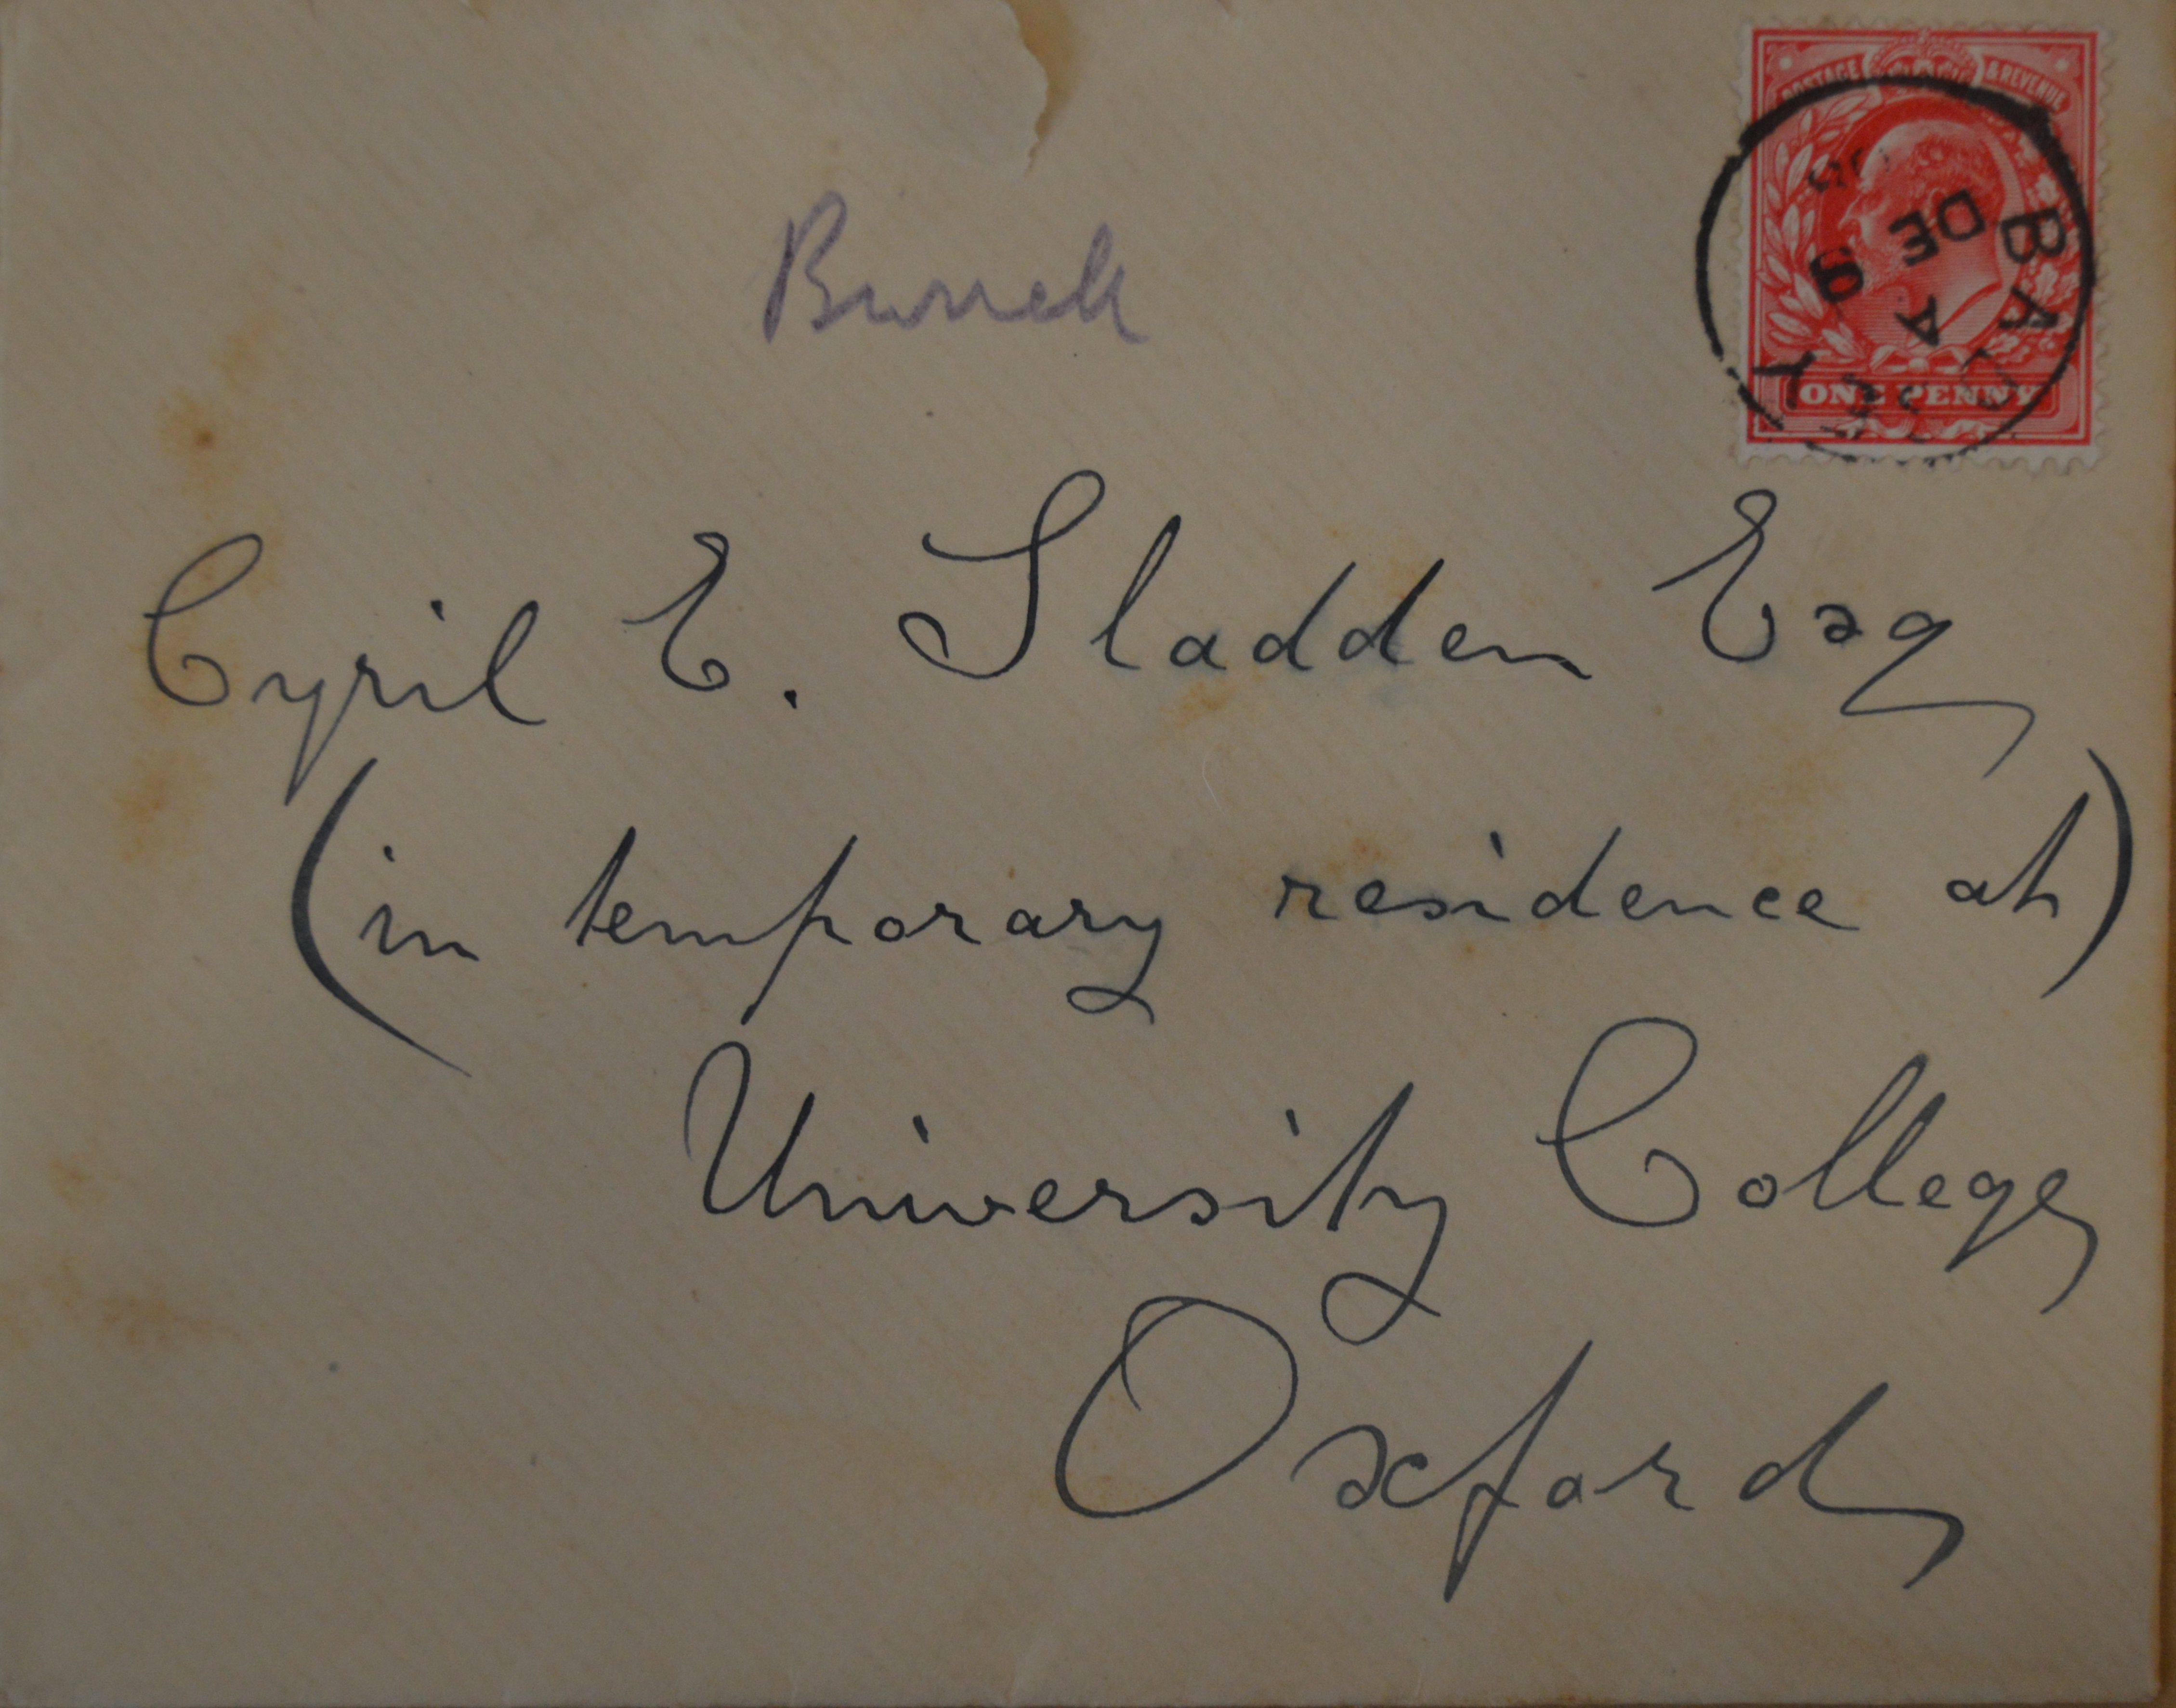 POSTAGE & REVENUE
BALSSEY
A
DE 9
ONE PENNY
Burrell
Cyril E. Sladden Esq
(in temporary residence at)
University College
Oxford